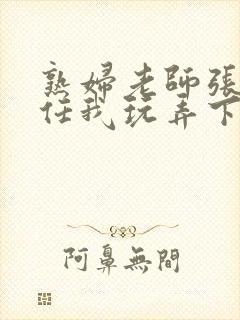 熟婦老師張
任我玩弄下
阿鼻無間